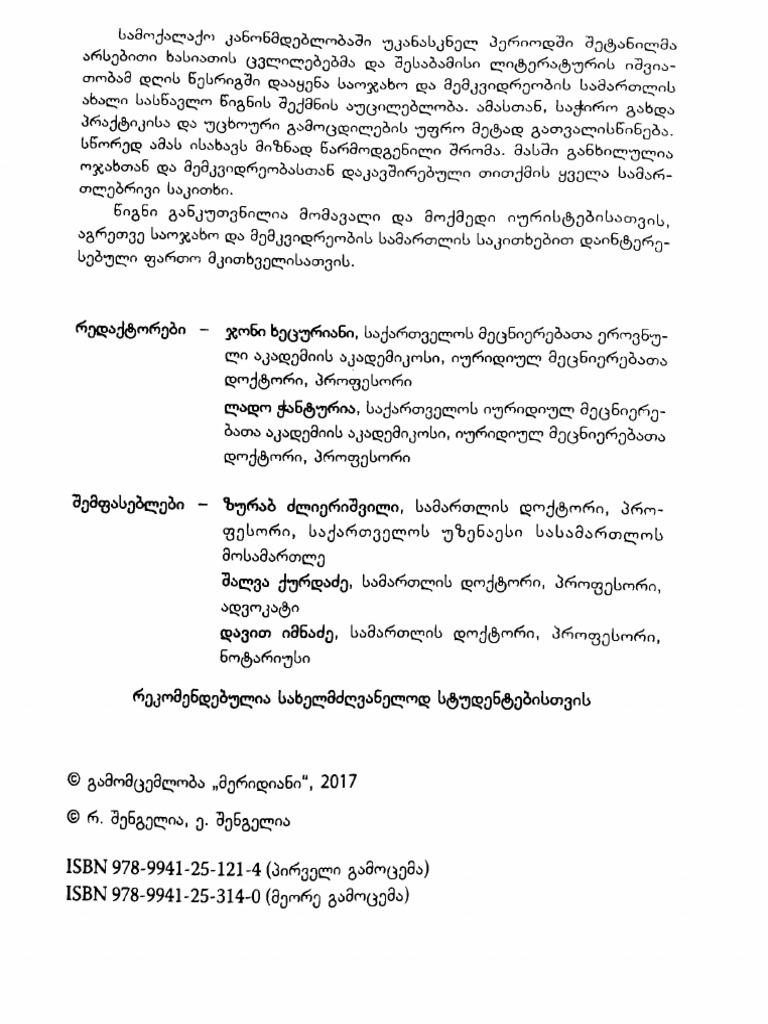 სამოქალაქო კანონმდებლობაში უკანასკნელ პერიოდში შეტანილმა
არსებითი ხასიათის ცვლილებებმა და შესაბამისი ლიტერატურის იშვია-
თობამ დღის წესრიგში დააყენა საოჯახო და მემკვიდრეობის სამართლის
ახალი სასწავლო წიგნის შექმნის აუცილებლობა. ამასთან, საჭირო გახდა
პრაქტიკისა და უცხოური გამოცდილების უფრო მეტად გათვალისწინება.
სწორედ ამას ისახავს მიზნად წარმოდგენილი შრომა. მასში განხილულია
ოჯახთან და მემკვიდრეობასთან დაკავშირებული თითქმის ყველა სამარ-
თლებრივი საკითხი.
წიგნი განკუთვნილია მომავალი და მოქმედი იურისტებისათვის,
აგრეთვე საოჯახო და მემკვიდრეობის სამართლის საკითხებით დაინტერე-
სებული ფართო მკითხველისათვის.
რედაქტორები – ჯონი ხეცურიანი, საქართველოს მეცნიერებათა ეროვნუ-
ლი აკადემიის აკადემიკოსი, იურიდიულ მეცნიერებათა
დოქტორი, პროფესორი
ლადო ჭანტურია, საქართველოს იურიდიულ მეცნიერე-
ბათა აკადემიის აკადემიკოსი, იურიდიულ მეცნიერებათა
დოქტორი, პროფესორი
შემფასებლები – ზურაბ ძლიერიშვილი, სამართლის დოქტორი, პრო-
ფესორი, საქართველოს უზენაესი სასამართლოს
მოსამართლე
შალვა ქურდაძე, სამართლის დოქტორი, პროფესორი,
ადვოკატი
დავით იმნაძე, სამართლის დოქტორი, პროფესორი,
ნოტარიუსი
რეკომენდებულია სახელმძღვანელოდ სტუდენტებისთვის
© გამომცემლობა „მერიდიანი“, 2017
© რ. შენგელია, ე. შენგელია
ISBN 978-9941-25-121-4 (პირველი გამოცემა)
ISBN 978-9941-25-314-0 (მეორე გამოცემა)